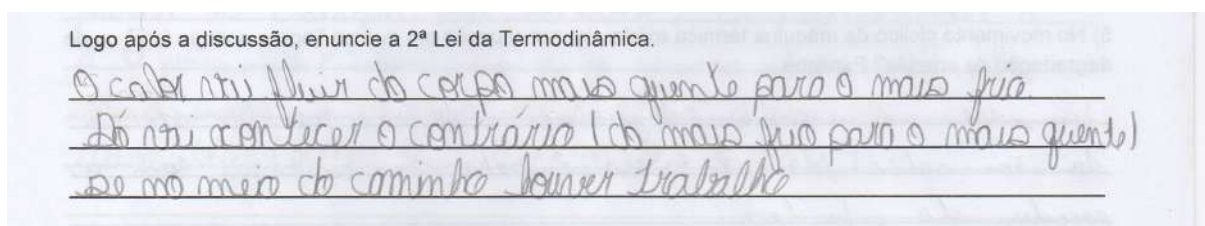 Logo após a discussão, enuncie a 2ª Lei da Termodinâmica.
O calor vai fluir do corpo mais quente para o mais frio.
Só vai acontecer o contrário (do mais frio para o mais quente)
se no meio do caminho houver trabalho